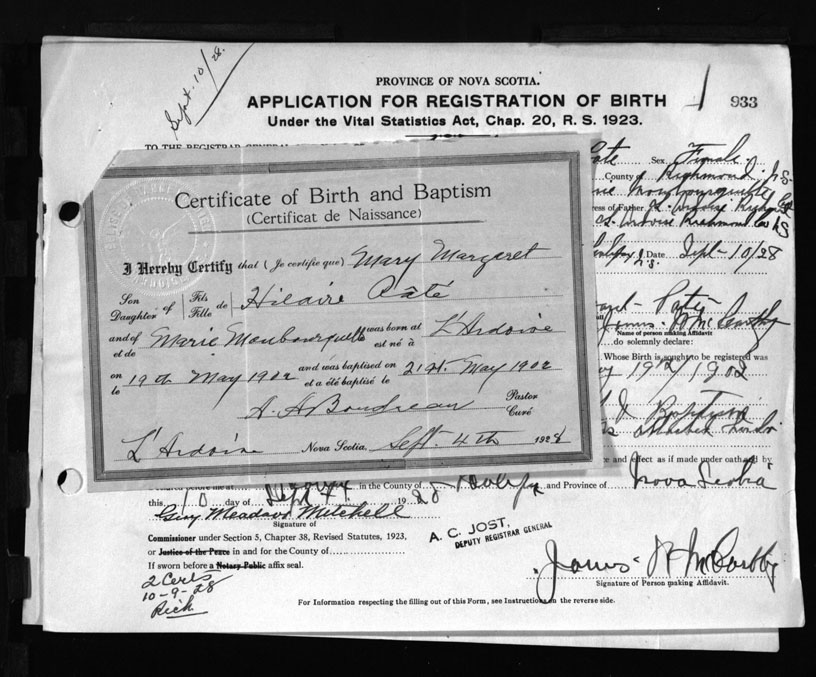 Sept. 10/28.
PROVINCE OF NOVA SCOTIA.
APPLICATION FOR REGISTRATION OF BIRTH
933
Under the Vital Statistics Act, Chap. 20, R. S. 1923.
TO THE REGISTRAR GENERAL
Sex Female
County of Richmond N.S.
Certificate of Birth and Baptism
(Certificat de Naissance)
I Hereby Certify that (Je certifie que) Mary Margaret
Son Daughter of Fils Fille de Hilaire Pâté
and of et de Marie Monbourquette was born at est né à L'Ardoise
on le 19th May 1902 and was baptised on et a été baptisé le 21st. May 1902
A. A Boudreau Pastor Curé
L'Ardoise Nova Scotia, Sept. 4th 1928
ress of Father L. Ardoise
Date Sept 10/28
James H McCarthy
Name of person making Affidavit
do solemnly declare:
Whose Birth is sought to be registered was
1902
Baptism
ce and effect as if made under oath and by
me at in the County of Halifax and Province of Nova Scotia
this 10 day of Sept 1928
Guy Meadows Mitchell
Signature of
Commissioner under Section 5, Chapter 38, Revised Statutes, 1923,
or Justice of the Peace in and for the County of
If sworn before a Notary Public affix seal.
A. C. JOST,
DEPUTY REGISTRAR GENERAL
James H McCarthy
Signature of Person making Affidavit.
2 Certs
10-9-28
Rich
For Information respecting the filling out of this Form, see Instructions on the reverse side.